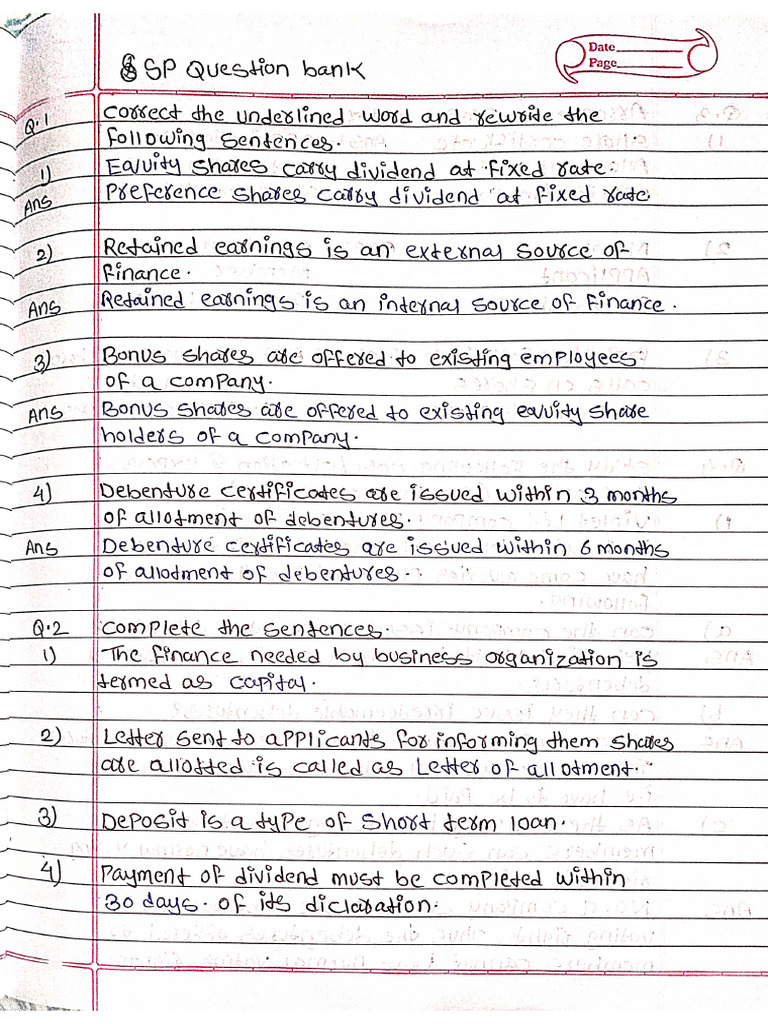 SP Question bank
Date
Page
Q.1 Correct the underlined word and rewrite the
following sentences.
1) Equity shares carry dividend at fixed rate.
Ans Preference shares carry dividend at fixed rate
2) Retained earnings is an external source of
finance.
Ans Retained earnings is an internal source of finance.
3) Bonus shares are offered to existing employees
of a company.
Ans Bonus shares are offered to existing equity share
holders of a company.
4) Debenture certificates are issued within 3 months
of allotment of debentures.
Ans Debenture certificates are issued within 6 months
of allotment of debentures.
Q.2 Complete the sentences.
1) The finance needed by business organization is
termed as capital.
2) Letter sent to applicants for informing them shares
are allotted is called as Letter of allotment.
3) Deposit is a type of short term loan.
4) Payment of dividend must be completed within
30 days. of its diclaration.